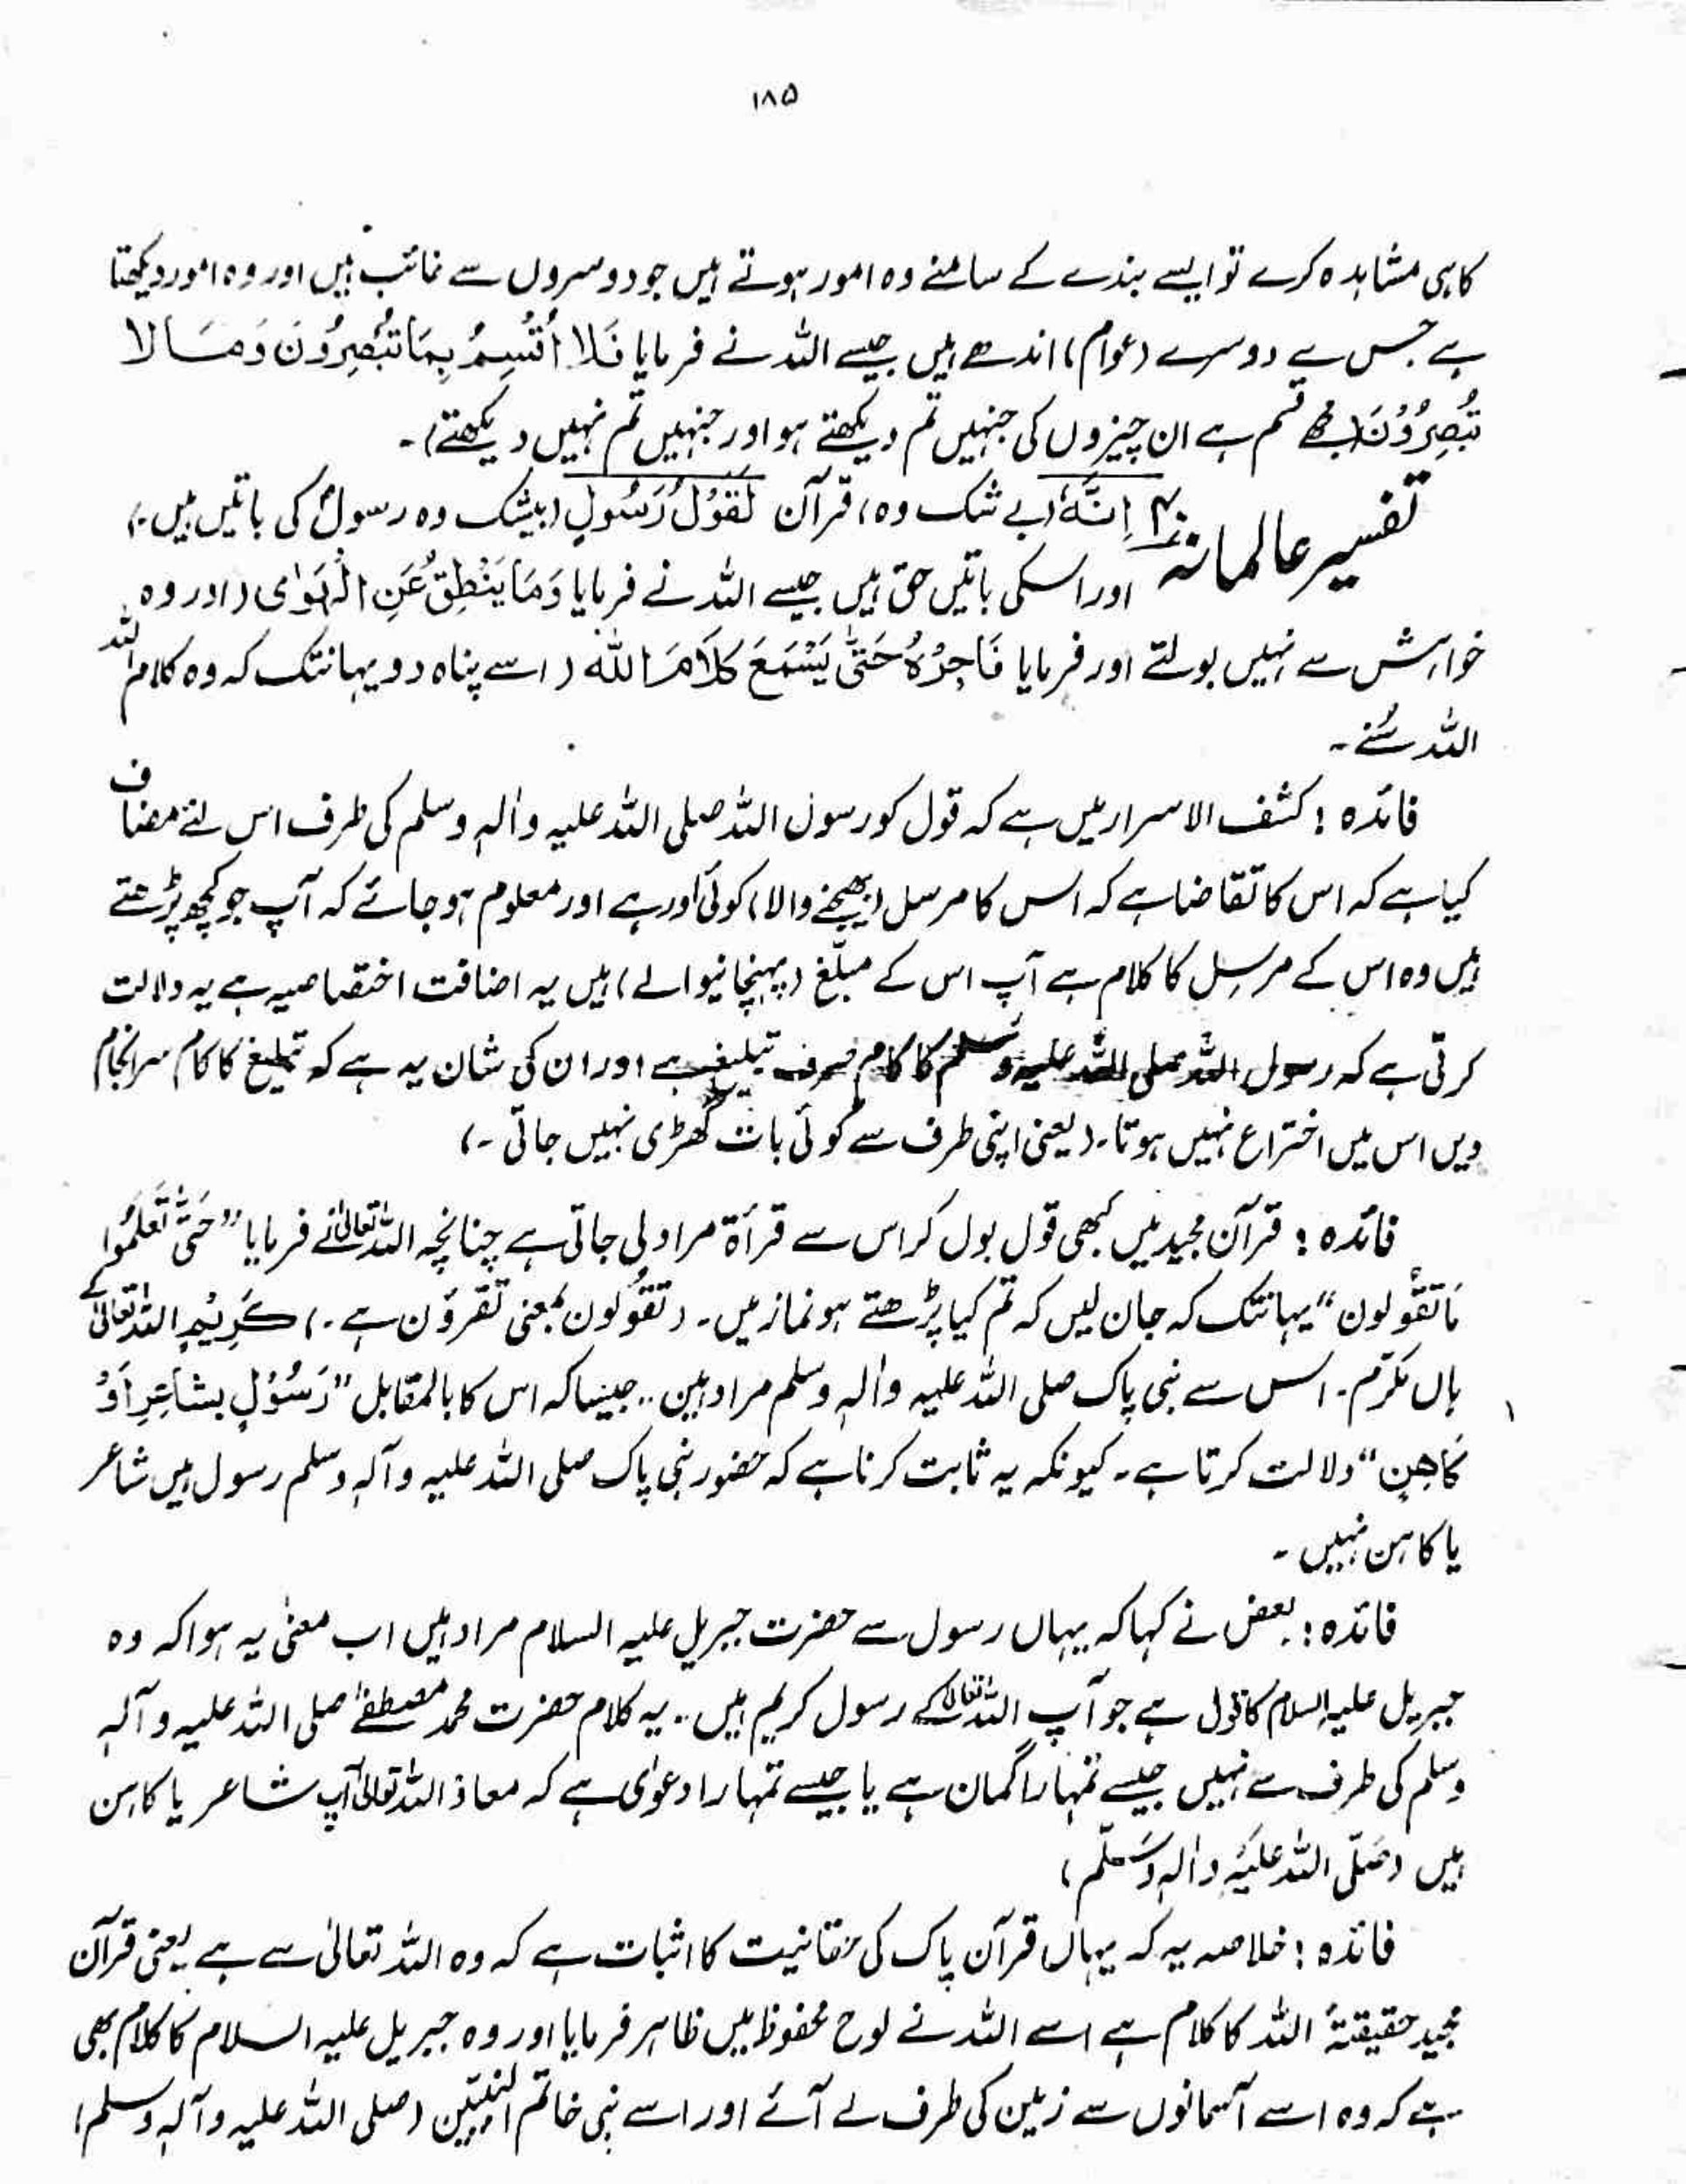 ۱۸۵
کا ہی مشاہدہ کرے تو ایسے بندے کے سامنے وہ امور ہوتے ہیں جو دوسروں سے غائب ہیں اور وہ امور دیکھتا
ہے جس سے دوسرے (عوام) اندھے ہیں جیسے اللہ نے فرمایا فَلَا اُقْسِمُ بِمَا تُبْصِرُوْنَ وَمَا لَا
تُبْصِرُوْنَ (مجھے قسم ہے ان چیزوں کی جنہیں تم دیکھتے ہو اور جنہیں تم نہیں دیکھتے)۔
تفسیر عالمانہ اِنَّهٗ (بے شک وہ) قرآن لَقَوْلُ رَسُوْلٍ (بیشک وہ رسول کی باتیں ہیں۔)
اور اسکی باتیں حق ہیں جیسے اللہ نے فرمایا وَمَا یَنْطِقُ عَنِ الْهَوٰی (اور وہ
خواہش سے نہیں بولتے اور فرمایا فَاَجِرْهُ حَتّٰی یَسْمَعَ کَلَامَ اللّٰه (اسے پناہ دو یہانتک کہ وہ کلام اللہ
اللہ سُنے۔
فائدہ : کشف الاسرار میں ہے کہ قول کو رسول اللہ صلی اللہ علیہ واٰلہٖ وسلم کی طرف اس لئے مضاف
کیا ہے کہ اس کا تقاضا ہے کہ اس کا مرسل (بھیجنے والا) کوئی اور ہے اور معلوم ہو جائے کہ آپ جو کچھ پڑھتے
ہیں وہ اس کے مرسِل کا کلام ہے آپ اس کے مبلّغ (پہنچانیوالے) ہیں یہ اضافت اختصاصیہ ہے یہ دلالت
کرتی ہے کہ رسول اللہ صلی اللہ علیہ وسلم کا کام صرف تبلیغ ہے اور ان کی شان یہ ہے کہ تبلیغ کا کام سرانجام
دیں اس میں اختراع نہیں ہوتا۔ (یعنی اپنی طرف سے کوئی بات گھڑی نہیں جاتی۔)
فائدہ : قرآن مجید میں کبھی قول بول کر اس سے قرأۃ مراد لی جاتی ہے چنانچہ اللہ تعالیٰ نے فرمایا ”حَتّٰی تَعْلَمُوا
مَا تَقُولون“ یہانتک کہ جان لیں کہ تم کیا پڑھتے ہو نماز میں۔ (تقولون بمعنی تقرؤن ہے۔) کَرِیْمٍ اللہ تعالیٰ کے
ہاں مکرّم۔ اس سے نبی پاک صلی اللہ علیہ واٰلہٖ وسلم مراد ہیں.. جیساکہ اس کا بالمقابل ”رَسُوْلٍ بشاعِرٍ اَوْ
کَاهِنٍ“ دلالت کرتا ہے۔ کیونکہ یہ ثابت کرنا ہے کہ حضور نبی پاک صلی اللہ علیہ وآلہٖ وسلم رسول ہیں شاعر
یا کاہن نہیں۔
فائدہ : بعض نے کہا کہ یہاں رسول سے حضرت جبریل علیہ السلام مراد ہیں اب معنیٰ یہ ہوا کہ وہ
جبریل علیہ السلام کا قول ہے جو آپ اللہ تعالیٰ کے رسول کریم ہیں.. یہ کلام حضرت محمد مصطفےٰ صلی اللہ علیہ وآلہٖ
وسلم کی طرف سے نہیں جیسے تمہارا گمان ہے یا جیسے تمہارا دعوٰی ہے کہ معاذ اللہ تعالیٰ آپ شاعر یا کاہن
ہیں (صَلَّی اللہ عَلَیْہِ واٰلہٖ وَسَلَّم)
فائدہ : خلاصہ یہ کہ یہاں قرآن پاک کی حقانیت کا اثبات ہے کہ وہ اللہ تعالیٰ سے ہے یعنی قرآن
مجید حقیقتۂ اللہ کا کلام ہے اسے اللہ نے لوح محفوظ میں ظاہر فرمایا اور وہ جبریل علیہ السلام کا کلام بھی
ہے کہ وہ اسے آسمانوں سے زمین کی طرف لے آئے اور اسے نبی خاتم النبیّین (صلی اللہ علیہ وآلہٖ وسلم)